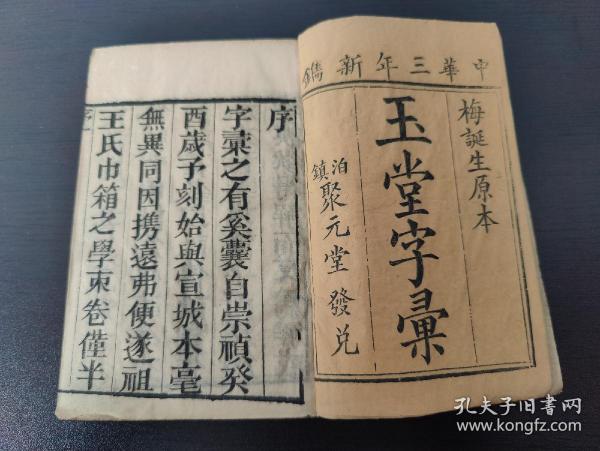 中華三年新鐫
梅誕生原本
玉堂字彙
泊鎮聚元堂發兑
序
字彙之有奚囊自崇禎癸
酉歲予刻始與宣城本毫
無異同因携遠弗便遂祖
王氏巾箱之學束卷僅半
序
孔夫子旧书网
www.kongfz.com